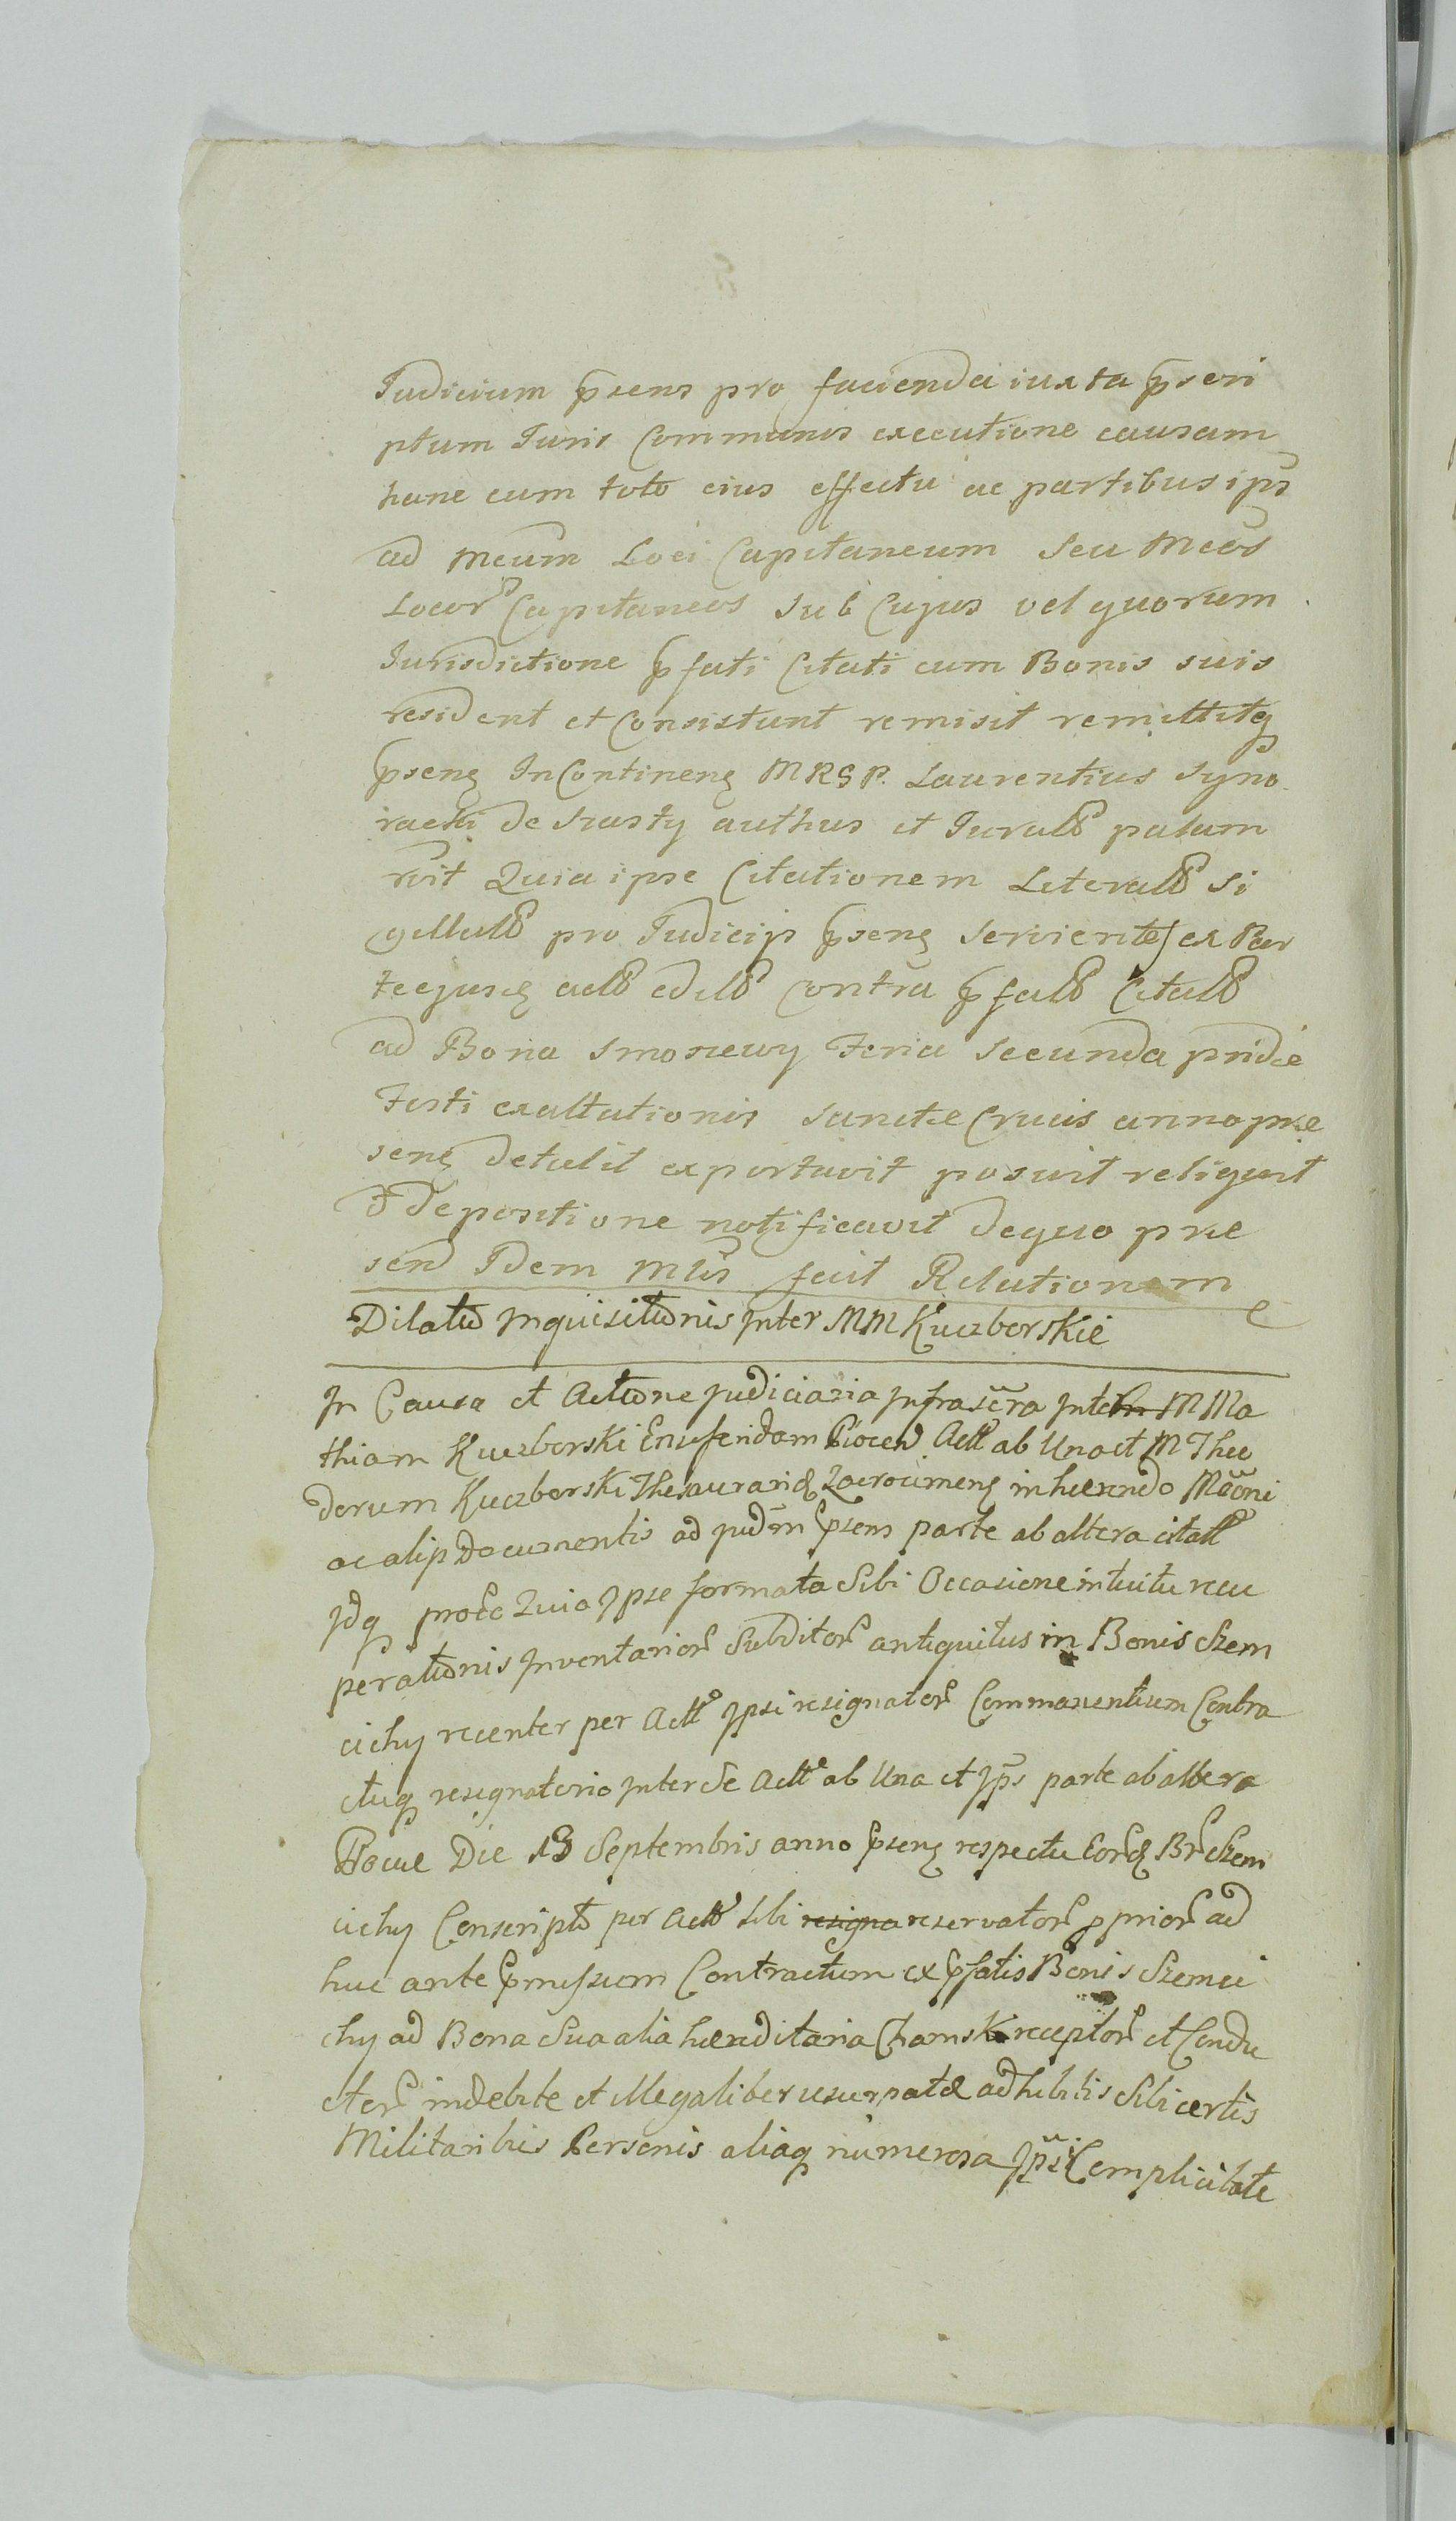 Judicium p̄sens pro facienda iuxta p̄scri
ptum Juris Communis executione causam
hanc cum toto eius effectu ac partibus ips̄
ad Meum Loci Capitaneum seu Meos
Locor̄ Capitaneos sub Cujus vel quorum
Jurisdictione p̄fati Citati cum Bonis suis
resident et Consistunt remisit remittitq
p̄sens InContinens MRSP. Laurentius Syno
racki de authus et Jurats palam
rvit Quia ipse Citationem Literals Si
gillats pro Judicijs p̄sens servientes ex Par
te ejusd acts edits Contra p̄fats Citats
ad Bona Smoszewy Feria Secunda pridie
Festi exaltationis Sanctæ Crucis anno præ
sens detulit exportavit posuit reliquit
depositione notificavit de quo præ
send Idem Mlis fecit Relationem
Dilatio Inquisitionis Inter MM Kuczborskie
In Causa et Actione Judiciaria Infrascr̄a Inter M Ma
thiam Kuczborski Ensiferidam Ciocen Actt ab Una et M Theo
dorum Kuczborski Thesauraridem Zacrocimens inhærendo Mc̄oni
ac alijs Documentis ad Jud̄m p̄sens parte ab altera citatt
Idq proc̄o Quia Ipse formata Sibi Occasione intuitu recu
perationis Inventarior̄ Subditor̄ antiquitus in Bonis Szem
cichy recenter per Actt Ipsi resignator̄ Commanentium Contra
ctuq resignatorio Inter Se Actt ab Una et Ips̄ parte ab altera
Die 13 Septembris anno p̄sens respectu Eord Br̄ Szem
cichy Conscripto per Actt Sibi resigna reservator̄ p prior̄ ad
huc ante p̄missum Contractum ex p̄fatis Bonis Szemci
chy ad Bona Sua alia hæreditaria Chamsk receptor̄ et Condu
ctor̄ indebite et illegaliter usurpatæ adhibitis Sibi certis
Militaribus Personis aliaq numerosa Ips̄i Complicitate